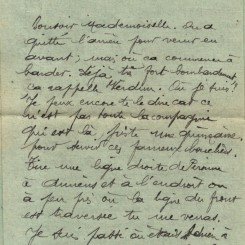 Bonsoir Mademoiselle. On a
quitté l'arrière pour venir en
avant ; mais où ça commence à
barder. Déjà tu fort bombardement
ça rappelle Verdun. Où je suis ?
Je peux encore te le dire car ce
n'est pas toute la compagnie
qui est là, juste une quinzaine
pour servir ces fameux boucliers.
Tire une ligne droite de Péronne
à Amiens et à l'endroit où
à peu près où la ligne du front
est traversée tu me verras.
Je suis passé où était